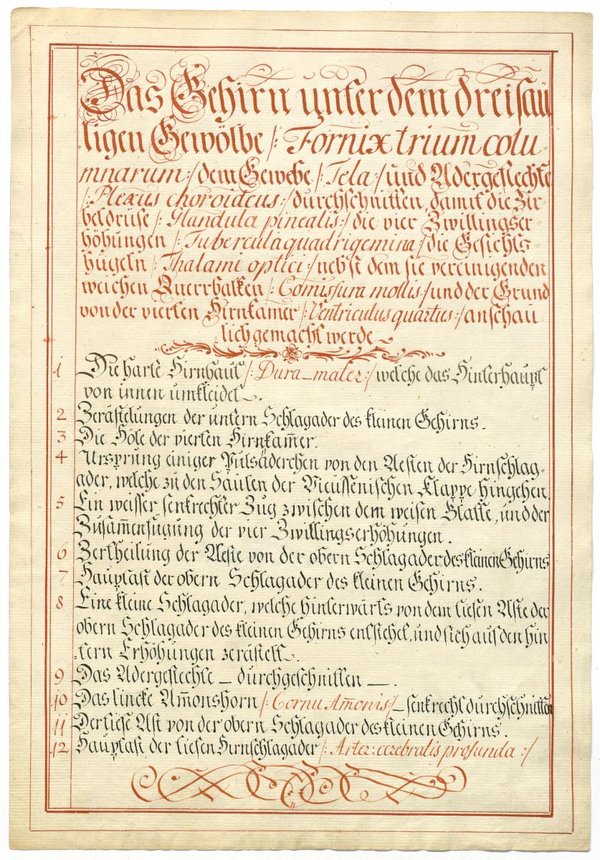 Das Gehirn unter dem dreisäu
ligen Gewölbe /: Fornix trium colu
mnarum :/ dem Gewebe /: Tela :/ und Adergeflechte
/: Plexus choroideus :/ durchschnitten, damit die Zir=
beldrüse /: Glandula pinealis :/ die vier Zwillingser=
höhungen /: Tubercula quadrigemina :/ die Gesichts=
hügeln /: Thalami optici :/ nebst dem sie vereinigenden
weichen Querrbalken /: Comissura mollis :/ und der Grund
von der vierten Hirnkam̅er /: Ventriculus quartus :/ anschau
lich gemacht werde
1 Die harte Hirnhaut /: Dura_mater :/ welche das Hinterhaupt
von innen umkleidet.
2 Zerästelungen der untern Schlagader des kleinen Gehirns.
3 Die Höle der vierten Hirnkam̅er.
4 Ursprung einiger Pulsäderchen von den Aesten der Hirnschlag=
ader, welche zu den Säulen der Vieussenischen Klappe hingehen.
5 Ein weisser, senkrechter Zug zwischen dem weisen Blatte, und der
Zusam̅enfügung der vier Zwillingserhöhungen.
6 Zertheilung der Aeste von der obern Schlagader des kleinen Gehirns
7 Hauptast der obern Schlagader des kleinen Gehirns.
8 Eine kleine Schlagader, welche hinterwärts von dem tiefen Aste der
obern Schlagader des kleinen Gehirns entstehet, und sich aus den hin
tern Erhöhungen zerästelt.
9 Das Adergeflechte _ durchgeschnitten _.
10 Das lincke Am̅onshorn /: Cornu Am̅onis :/ _ senkrecht durchschnitten
11 Der tiefe Ast von der obern Schlagader des kleinen Gehirns.
12 Hauptast der tiefen Hirnschlagader /: Arter: cerebralis profunda :/